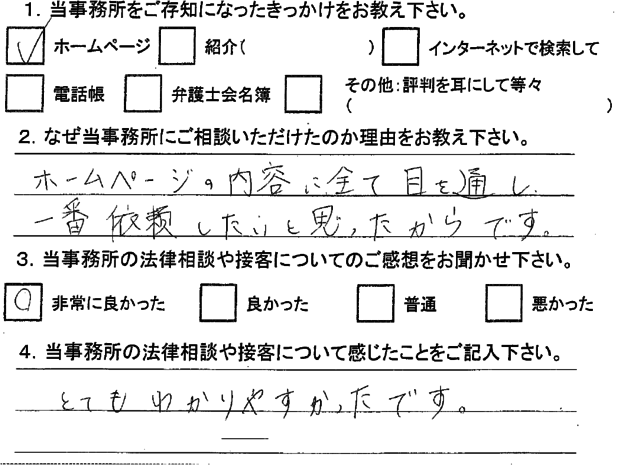 1. 当事務所をご存知になったきっかけをお教え下さい。
ホームページ 紹介( ) インターネットで検索して
電話帳 弁護士会名簿 その他:評判を耳にして等々
( )
2. なぜ当事務所にご相談いただけたのか理由をお教え下さい。
ホームページの内容に全て目を通し、
一番依頼したいと思ったからです。
3. 当事務所の法律相談や接客についてのご感想をお聞かせ下さい。
非常に良かった 良かった 普通 悪かった
4. 当事務所の法律相談や接客について感じたことをご記入下さい。
とてもわかりやすかったです。